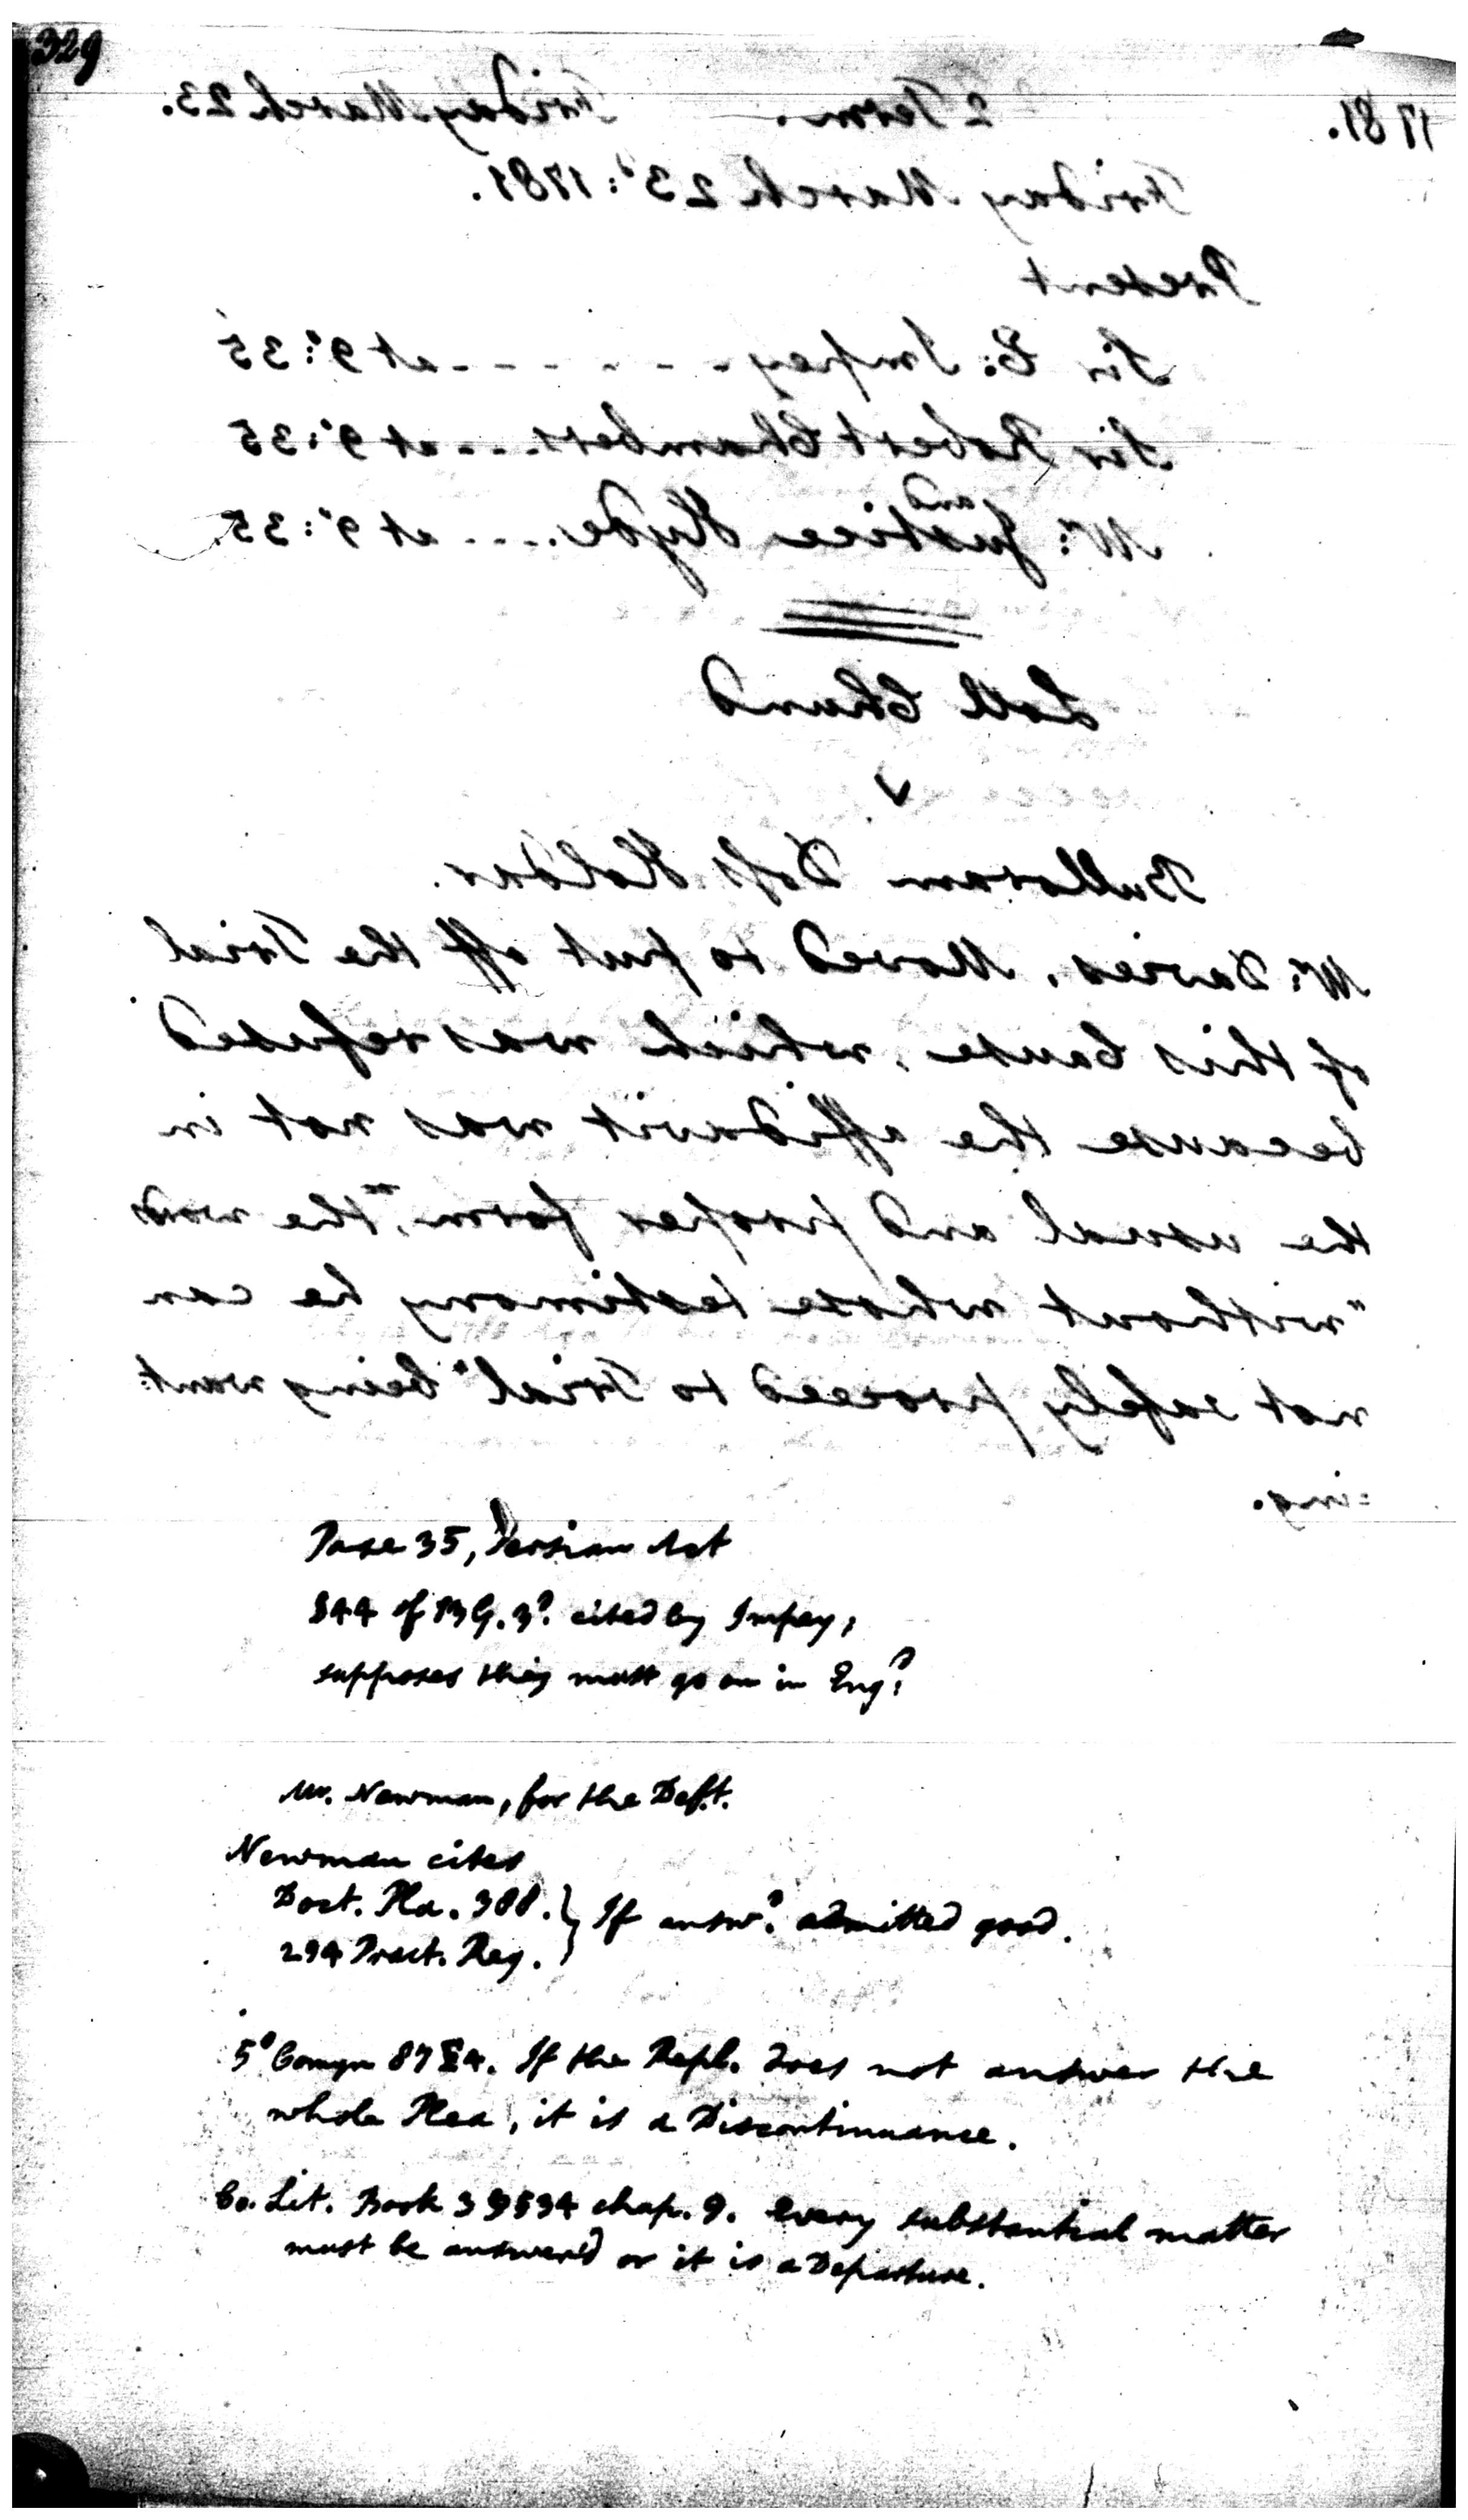 329
1781. 2 Term. Friday March 23.
Friday March 23d: 1781.
Present
Sir E: Impey - - - - - - - at 9h: 35
Sir Robert Chambers - - - at 9h: 35
and
Mr: Justice Hyde - - - - at 9h: 35.
Loll Chund
v
Bulloram Doss Holdar.
Mr: Davies, Moved to put off the Trial
of this Cause, which was refused
because the affidavit was not in
the usual and proper form, the words
"without whose testimony he can
not safely proceed to Trial" being want:
=ing.
Page 35, Persian Act
S44 of 13 G. 3d. cited by Impey,
supposes they must go on in Engd:
Mr. Newman, for the Deft.
Newman cites
Doct. Pla. 388. } If answd. admitted good.
294 Pract. Reg.
5d Comyn 87 E4. If the Repl. does not answer the
whole Plea, it is a Discontinuance.
Co. Lit. Book 3 § 534 chap. 9. every substantial matter
must be answerd or it is a Departure.